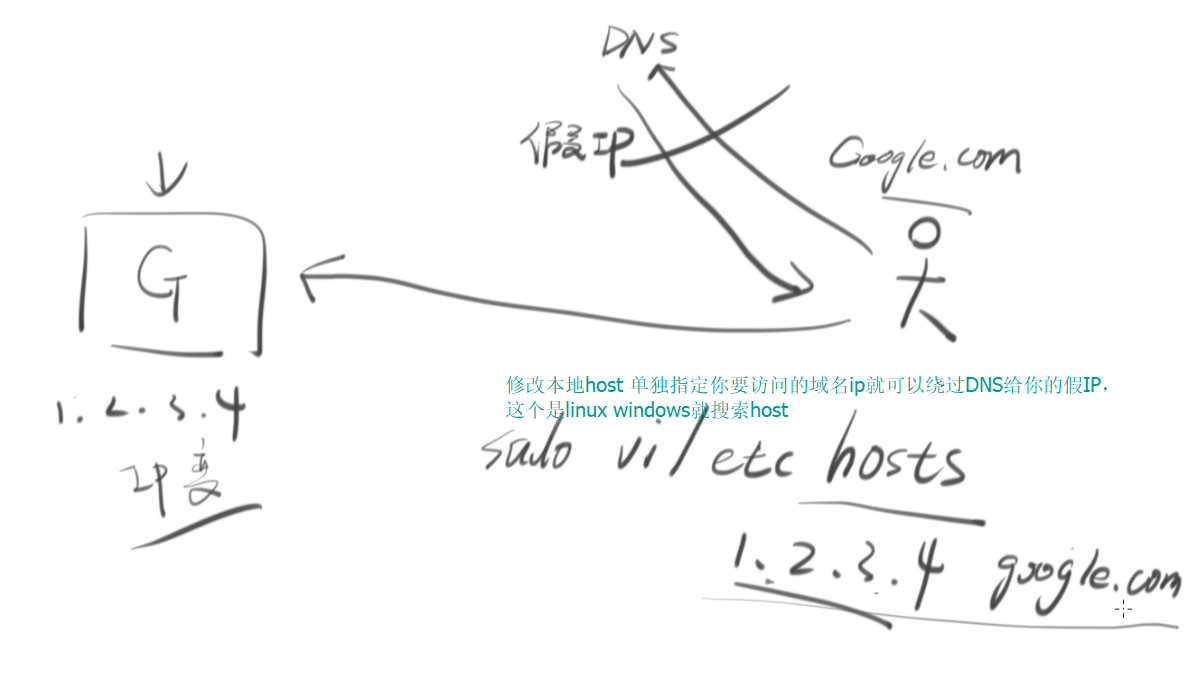 DNS
假IP
Google.com
G
1.2.3.4
IP变
修改本地host 单独指定你要访问的域名ip就可以绕过DNS给你的假IP，
这个是linux windows就搜索host
sudo vi /etc hosts
1.2.3.4 google.com